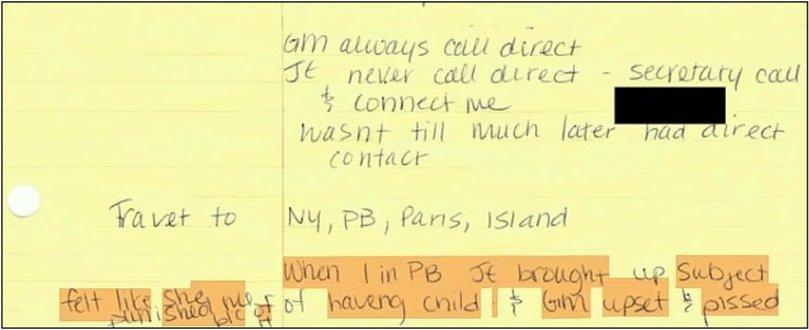 GM always call direct
JE never call direct - secretary call
& connect me
wasnt till much later had direct
contact
Travel to NY, PB, Paris, Island
When I in PB JE brought up subject
felt like she of having child & GM upset & pissed
punished me bc of it